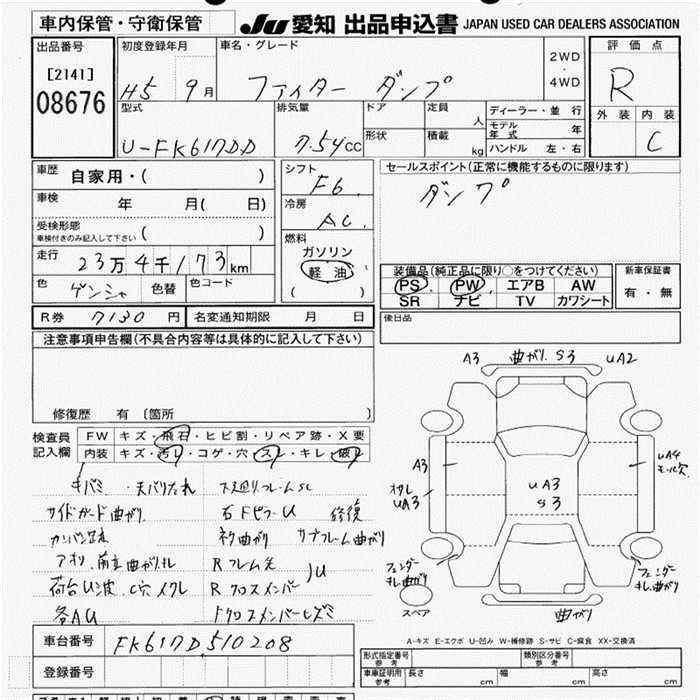 車内保管・守衛保管 JU 愛知 出品申込書 JAPAN USED CAR DEALERS ASSOCIATION
出品番号 初度登録年月 車名・グレード 2WD・4WD 評価点
[2141] 08676 H5 9月 ファイター ダンプ R
型式 排気量 ドア 定員 人 ディーラー・並行 外装 内装
U-FK617DD 7.54cc 形状 積載 kg モデル年式 年 C
ハンドル 左・右
車歴 自家用・( ) シフト F6 セールスポイント(正常に機能するものに限ります)
車検 年 月( 日) 冷房 AC ダンプ
受検形態 車検付きのみ記入して下さい ( ) 燃料 ガソリン
走行 23万4千173km 軽油
色 ゲンシャ 色替 色コード ( )
装備品(純正品に限り○をつけてください) 新車保証書
PS PW エアB AW 有・無
SR ナビ TV カワシート
R券 7130円 名変通知期限 月 日 後日品
注意事項申告欄(不具合内容等は具体的に記入して下さい)
修復歴 有 〔箇所
A3 曲がり S3 UA2
検査員記入欄 FW キズ・飛石・ヒビ割・リペア跡・X要
内装 キズ・汚レ・コゲ・穴・スレ・キレ・破レ
A3 UA3 S3 UA4
UA3
キバミ ・天バリたれ 下廻りフレームSC
サイドガード曲がり 右FピラーU 修復
曲がり サブフレーム曲がり
アオリ、前立曲がりキレ Rフレーム先
荷台U凹波、C穴、イタレ Rクロスメンバー U
各AU
フェンダーキレ、曲がり
フェンダーキレ、曲がり
スペア
曲がり
車台番号 FK617D510208
登録番号
A-キズ E-エクボ U-凹み W-補修跡 S-サビ C-腐食 XX-交換済
型式指定番号 参考 類別区分番号 参考
車庫証明用 参考 長さ 幅 高さ